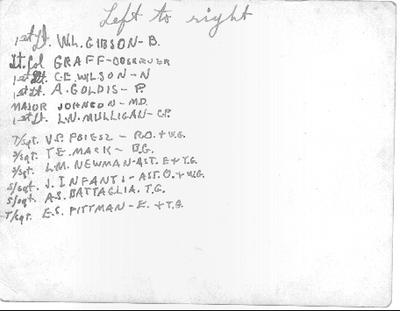 Left to right
1st Lt. W.L. GIBSON - B.
Lt. Col GRAFF - OBSERVER
1st Lt. C.E. WILSON - N
1st Lt. A. GOLDIS - P.
MAJOR JOHNSON - M.D.
1st Lt. L.N. MULLIGAN - C.P.
T/Sgt. V.S. PRIESZ - R.O. + W.G.
S/Sgt. T.E. MACK - B.G.
S/Sgt. L.M. NEWMAN - AST. E + T.G.
S/Sgt. J. INFANTI - AST. O. + W.G.
S/Sgt. A.S. BATTAGLIA. T.G.
T/Sgt. E.S. PITTMAN - E. + T.G.